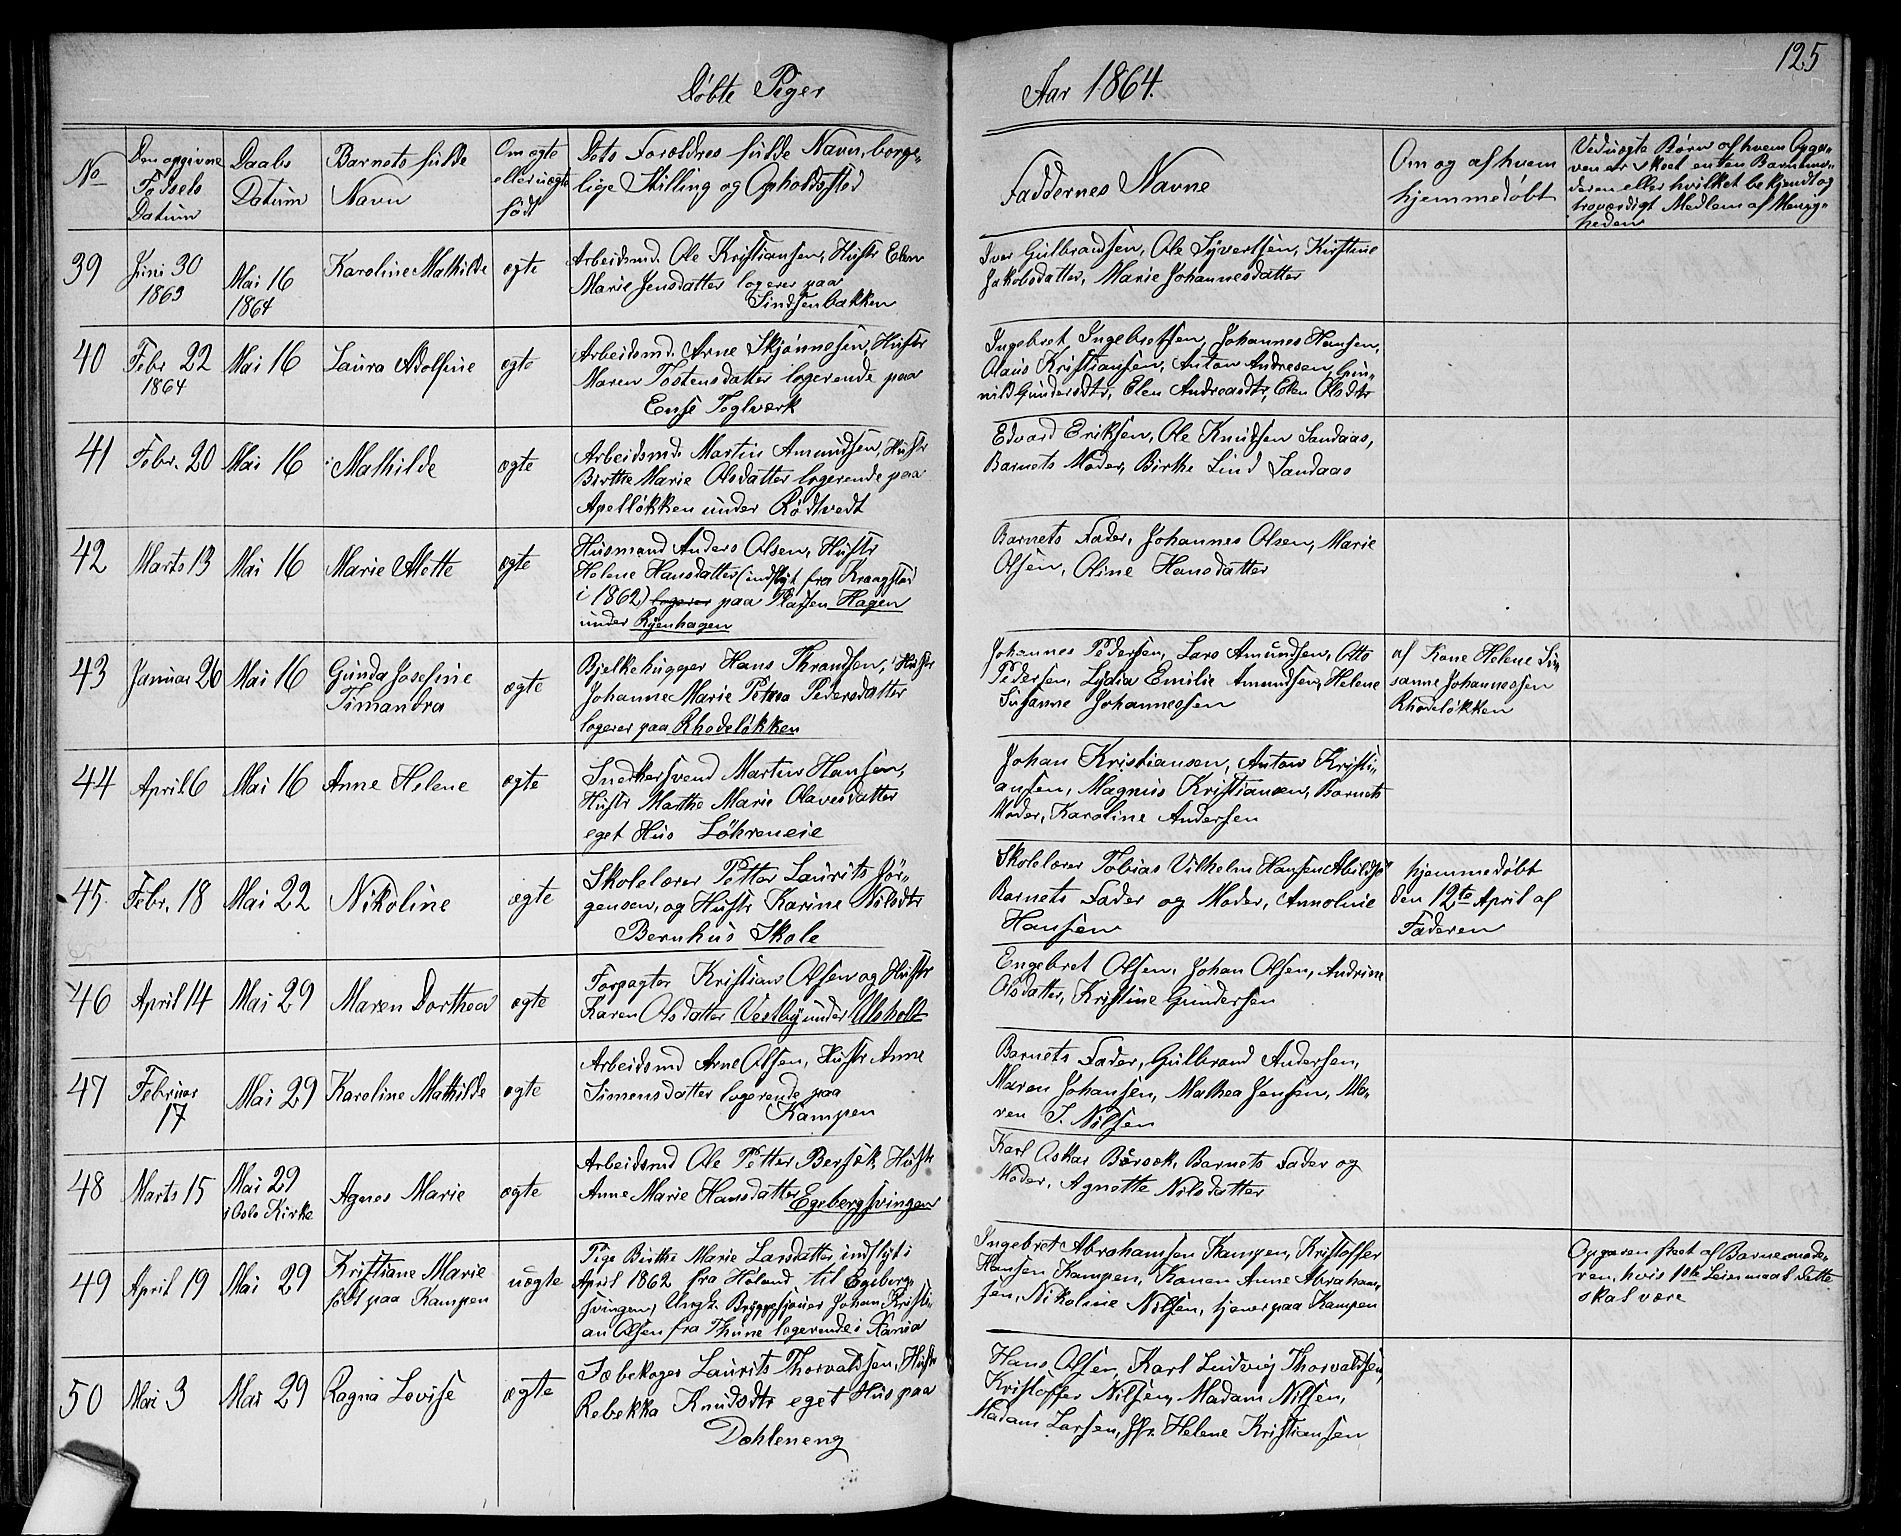 125
Døbte Piger
Aar 1864.
No
Den opgivne
Fødsels
Datum
Daabs
Datum
Barnets fulde
Navn
Om ægte
eller uægte
født
Dets Forældres fulde Navn, borge-
lige Stilling og Opholdssted
Faddernes Navne
Om og af hvem
hjemmedøbt
Ved uægte Børn af hvem Opga-
ven er skeet enten Barnemo-
deren eller hvilket bekjendt og
troværdigt Medlem af Menig-
heden
39
Juni 30
1863
Mai 16
1864
Karoline Mathilde
ægte
Arbeidsmd. Ole Kristiansen, Hustr Elen
Marie Jensdatter logerer paa
Sindsenbakken
Iver Gulbrandsen, Ole Syvertsen, Kirstine
Jakobsdatter, Marie Johannesdatter
40
Febr 22
1864
Mai 16
Laura Adolfine
ægte
Arbeidsmd. Arne Skjønnesen, Hustr
Maren Tostensdatter logerende paa
Ense Teglværk
Ingebret Ingebretsen, Johannes Hansen,
Olaus Kristiansen, Anton Andresen, Gun-
nild Gundersdtr, Elen Andreasdtr, Elen Olsdtr
41
Febr. 20
Mai 16
Mathilde
ægte
Arbeidsmd. Martin Amundsen, Hustr
Birthe Marie Olsdatter logerende paa
Apelløkken under Rødtvedt
Edvard Eriksen, Ole Knudsen Sandaas,
Barnets Moder, Birthe Lind Sandaas
42
Marts 13
Mai 16
Marie Alette
ægte
Husmand Anders Olsen, Hustr
Helene Hansdatter (indflyt fra Kraagstad
i 1862) logerer paa Pladsen Hagen
under Ryenhagen
Barnets Fader, Johannes Olsen, Marie
Olsen, Oline Hansdatter
43
Januar 26
Mai 16
Gunda Josefine
Timandra
ægte
Bjelkehugger Hans Thrandsen, Hustr
Johanne Marie Petrea Pedersdatter
logerer paa Rhodeløkken
Johannes Pedersen, Lars Amundsen, Otto
Pedersen, Lydia Emilie Amundsen, Helene
Susanne Johannessen
af Kone Helene Su-
sanne Johannessen
Rhodeløkken
44
April 6
Mai 16
Anne Helene
ægte
Snedkersvend Martin Hansen,
Hustr Marthe Marie Olavesdatter
eget Hus Løhreneie
Johan Kristiansen, Anton Kristi-
ansen, Magnus Kristiansen, Barnets
Moder, Karoline Andersen
45.
Febr. 18
Mai 22
Nikoline
ægte
Skolelærer Petter Laurits Jør-
gensen, og Hustr Karine Nilsdtr
Bernhus Skole
Skolelærer Tobias Vilhelm Hansen Abildsø
Barnets Fader og Moder, Annoline
Hansen
hjemmedøbt
den 12te April af
Faderen
46
April 14
Mai 29
Maren Dorthea
ægte
Forpagter Kristian Olsen og Hustr
Karen Olsdatter Vestby under Ulsholt
Engebret Olsen, Johan Olsen, Andrine
Olsdatter, Kristine Gundersen
47
Februar
17
Mai 29
Karoline Mathilde
ægte
Arbeidsmd Arne Olsen, Hustr Anne
Simensdatter logerende paa
Kampen
Barnets Fader, Gulbrand Andersen,
Maren Johansen, Mathea Jensen, Ma-
ren S. Nilsen
48
Marts 15
Mai 29
i Oslo Kirke
Agnes Marie
ægte
Arbeidsmd Ole Petter Børsæk, Hustr
Anne Marie Hansdatter Egebergsvingen
Karl Oskar Børsæk, Barnets Fader og
Moder, Agnette Nilsdatter
49
April 19
Mai 29
Kristiane Marie
født paa Kampen
uægte
Pige Birthe Marie Larsdatter indflyt i
April 1862 fra Høland til Egeberg-
svingen, Ungk. Bryggesjouer Johan Kristi-
an Olsen fra Thune logerende i Xania
Ingebret Abrahamsen Kampen, Kristoffer
Hansen Kampen, Konen Anne Abraham-
sen, Nikoline Nilsen, tjener paa Kampen
Opgaven skeet af Barnemode-
ren, hvis 1ste Leiermaal dette
skal være
50
Mai 3
Mai 29
Ragna Lovise
ægte
Sæbekoger Laurits Thorvaldsen, Hustr
Rebekka Knudsdtr eget Hus paa
Dahleneng
Hans Olsen, Karl Ludvig Thorvaldsen,
Kristoffer Nilsen, Madam Nilsen,
Madam Larsen, Jfr. Helene Kristiansen